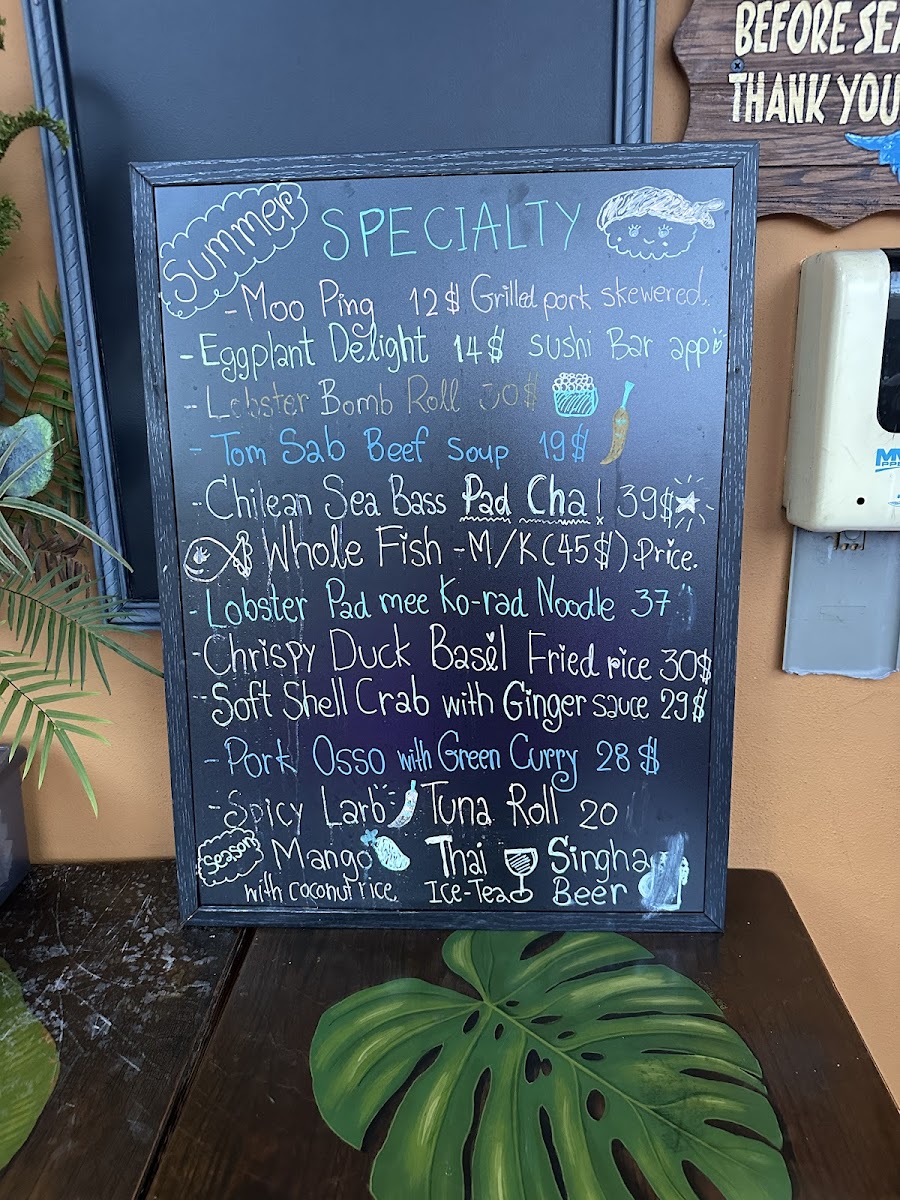 BEFORE SEA
THANK YOU
Summer SPECIALTY
- Moo Ping 12$ Grilled pork skewered.
- Eggplant Delight 14$ sushi Bar app
- Lobster Bomb Roll 30$
- Tom Sab Beef soup 19$
- Chilean Sea Bass Pad Cha! 39$
Whole Fish - M/K (45$) Price.
- Lobster Pad mee Ko-rad Noodle 37
- Chrispy Duck Basil Fried rice 30$
- Soft Shell Crab with Ginger sauce 29$
- Pork Osso with Green Curry 28$
- Spicy Larb Tuna Roll 20
Season Mango Thai Singha
with coconut rice Ice-Tea Beer